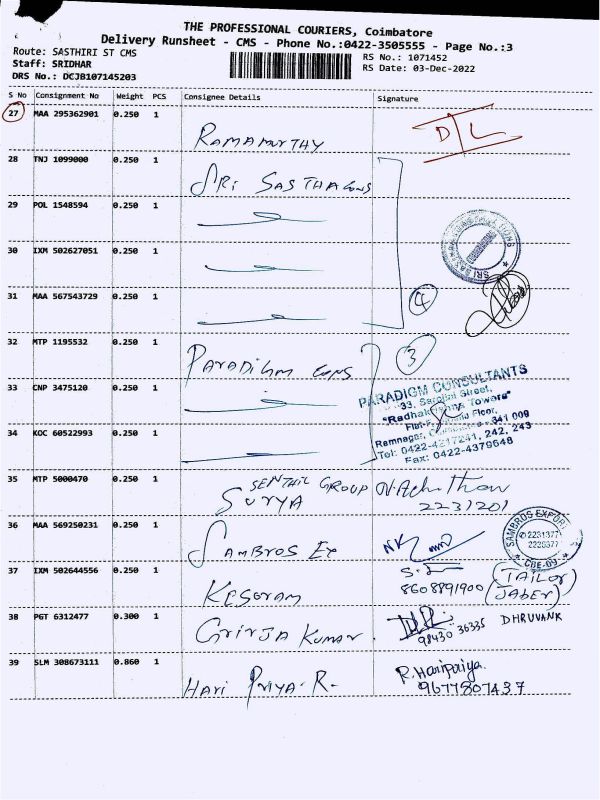 THE PROFESSIONAL COURIERS, Coimbatore
Delivery Runsheet - CMS - Phone No.:0422-3505555 - Page No.:3
Route: SASTHIRI ST CMS
Staff: SRIDHAR
DRS No.: DCJB107145203
RS No.: 1071452
RS Date: 03-Dec-2022
S No Consignment No Weight PCS Consignee Details Signature
27 MAA 295362901 0.250 1 RAMAMURTHY D/L
28 TNJ 1099000 0.250 1 SRI SASTHA CONS
29 POL 1548594 0.250 1
30 IXM 502627051 0.250 1
31 MAA 567543729 0.250 1
4
32 MTP 1195532 0.250 1 PARADIGM CONS
3
33 CNP 3475120 0.250 1
34 KOC 60522993 0.250 1
PARADIGM CONSULTANTS
33, Sarojini Street,
"Radhakrishna Towers"
Floor,
Ramnagar, - 641 009
Tel: 0422-4217241, 242, 243
Fax: 0422-4379648
35 MTP 5000470 0.250 1 SENTHIL GROUP
SURYA
2231201
36 MAA 569250231 0.250 1 SAMBROS EX NK
SAMBROS EXPORT
2231377
CBE-09
37 IXM 502644556 0.250 1 KESORAM
8608891900 (TAILOR
JABER)
38 PGT 6312477 0.300 1 GIRIJA KUMAR
98430 36335 DHRUVANK
39 SLM 308673111 0.860 1 HARI PRIYA. R. R. Haripriya.
9677807437